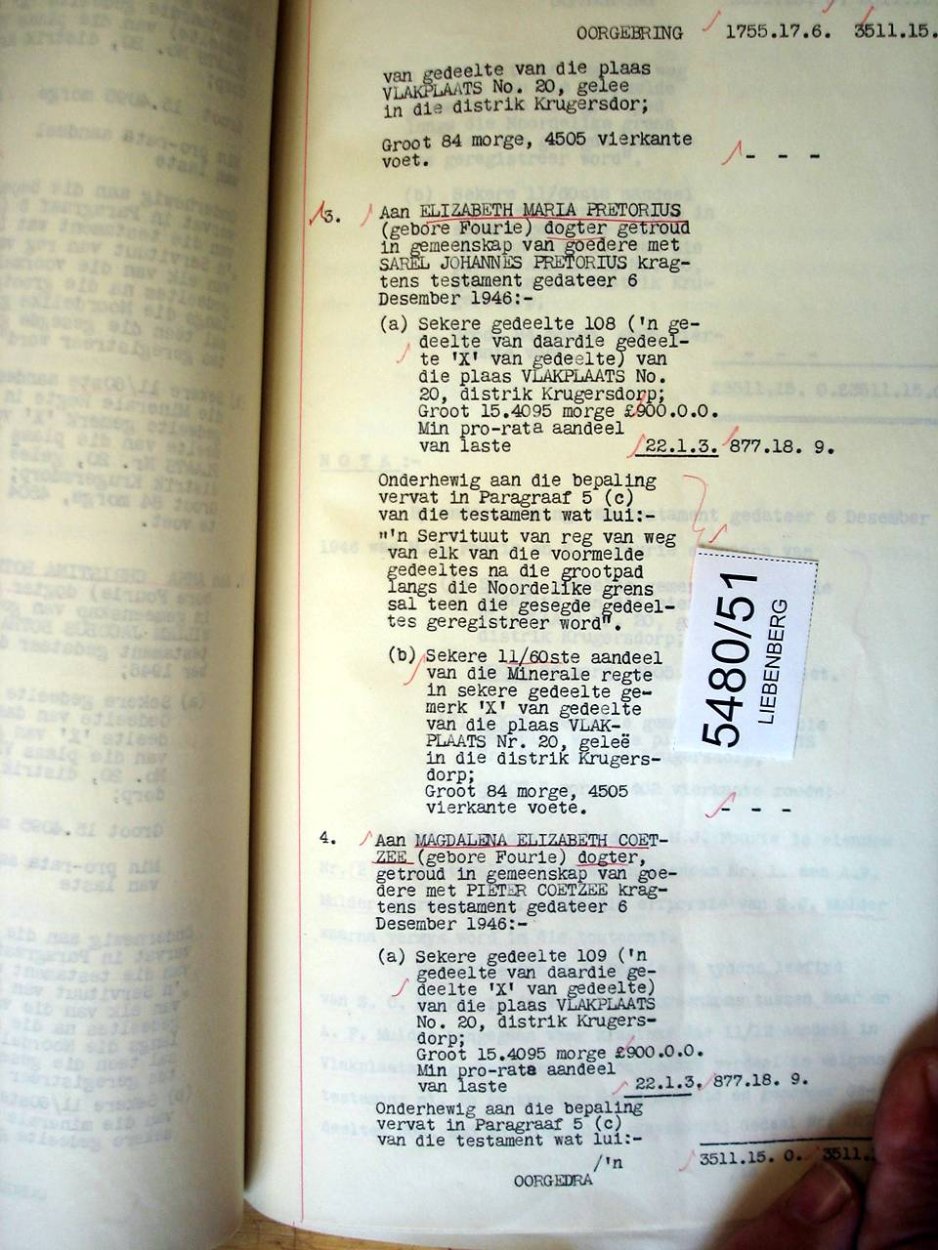 OORGEBRING 1755.17.6. 3511.15.
van gedeelte van die plaas
VLAKPLAATS No. 20, gelee
in die distrik Krugersdor;
Groot 84 morge, 4505 vierkante
voet. - - -
3. Aan ELIZABETH MARIA PRETORIUS
(gebore Fourie) dogter getroud
in gemeenskap van goedere met
SAREL JOHANNES PRETORIUS krag-
tens testament gedateer 6
Desember 1946:-
(a) Sekere gedeelte 108 ('n ge-
deelte van daardie gedeel-
te 'X' van gedeelte) van
die plaas VLAKPLAATS No.
20, distrik Krugersdorp;
Groot 15.4095 morge £900.0.0.
Min pro-rata aandeel
van laste 22.1.3. 877.18. 9.
Onderhewig aan die bepaling
vervat in Paragraaf 5 (c)
van die testament wat lui:-
"'n Servituut van reg van weg
van elk van die voormelde
gedeeltes na die grootpad
langs die Noordelike grens
sal teen die gesegde gedeel-
tes geregistreer word".
(b) Sekere 11/60ste aandeel
van die Minerale regte
in sekere gedeelte ge-
merk 'X' van gedeelte
van die plaas VLAK-
PLAATS Nr. 20, geleë
in die distrik Krugers-
dorp;
Groot 84 morge, 4505
vierkante voete. - - -
5480/51
LIEBENBERG
4. Aan MAGDALENA ELIZABETH COET-
ZEE (gebore Fourie) dogter,
getroud in gemeenskap van goe-
dere met PIETER COETZEE krag-
tens testament gedateer 6
Desember 1946:-
(a) Sekere gedeelte 109 ('n
gedeelte van daardie ge-
deelte 'X' van gedeelte)
van die plaas VLAKPLAATS
No. 20, distrik Krugers-
dorp;
Groot 15.4095 morge £900.0.0.
Min pro-rata aandeel
van laste 22.1.3. 877.18. 9.
Onderhewig aan die bepaling
vervat in Paragraaf 5 (c)
van die testament wat lui:-
/'n 3511.15. 0. 3511.
OORGEDRA